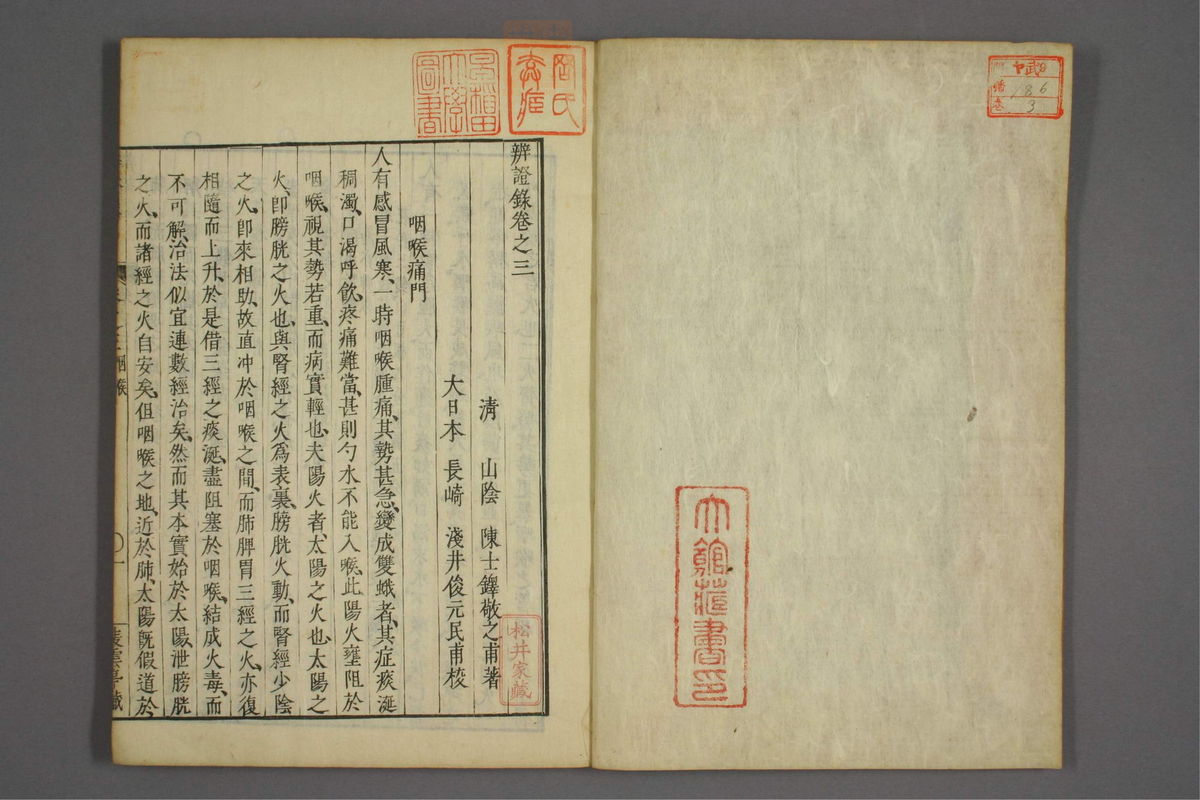 辨證錄卷之三
清　山陰　陳士鐸敬之甫著
大日本　長崎　淺井俊元民甫校
咽喉痛門
人有感冒風寒、一時咽喉腫痛、其勢甚急、變成雙蛾者、其症痰涎
稠濁、口渴呼飲、疼痛難當、甚則勺水不能入喉、此陽火壅阻於
咽喉、視其勢若重、而病實輕也、夫陽火者、太陽之火也、太陽之
火、卽膀胱之火也、與腎經之火爲表裏、膀胱火動、而腎經少陰
之火、卽來相助、故直冲於咽喉之間、而肺脾胃三經之火、亦復
相隨而上升、於是借三經之痰涎、盡阻塞於咽喉、結成火毒、而
不可解、治法似宜連數經治矣、然而其本實始於太陽、泄膀胱
之火、而諸經之火自安矣、但咽喉之地、近於肺、太陽旣假道於
咽喉
早稻田大學圖書
松井家藏
186
3